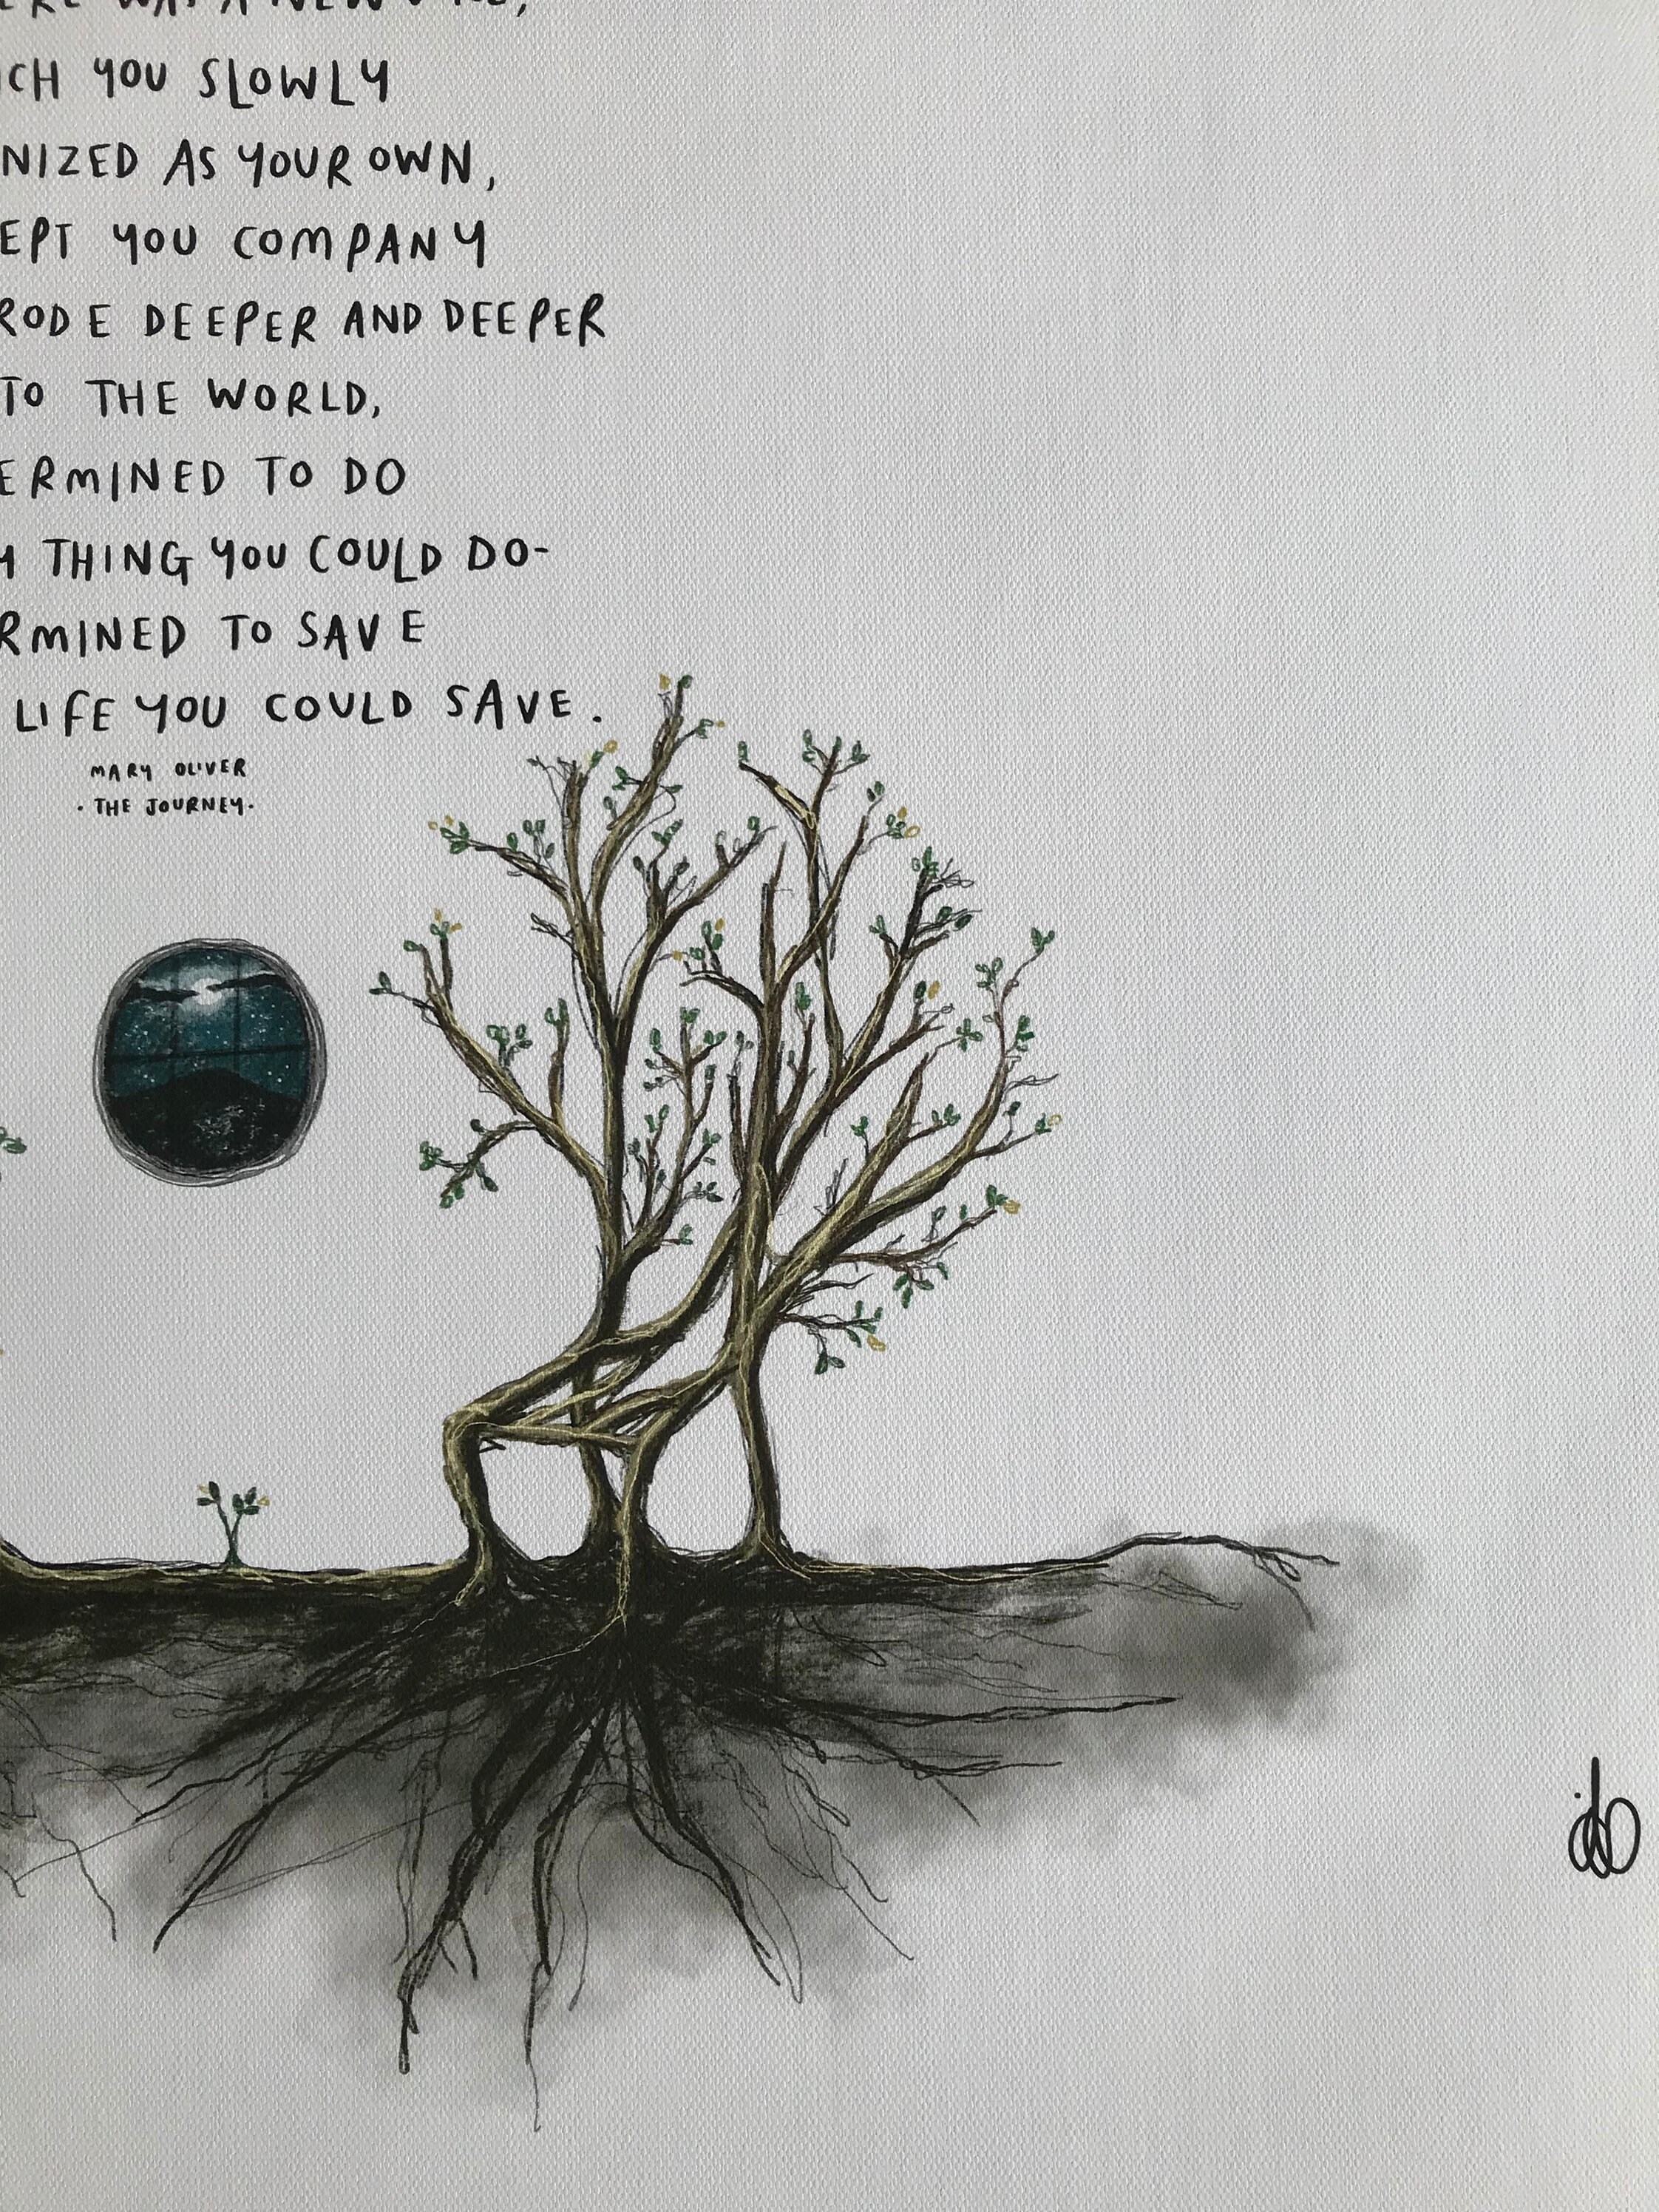 WAS A NEW
ICH YOU SLOWLY
NIZED AS YOUR OWN,
EPT YOU COMPANY
RODE DEEPER AND DEEPER
TO THE WORLD,
ERMINED TO DO
Y THING YOU COULD DO-
RMINED TO SAVE
LIFE YOU COULD SAVE.
MARY OLIVER
• THE JOURNEY •